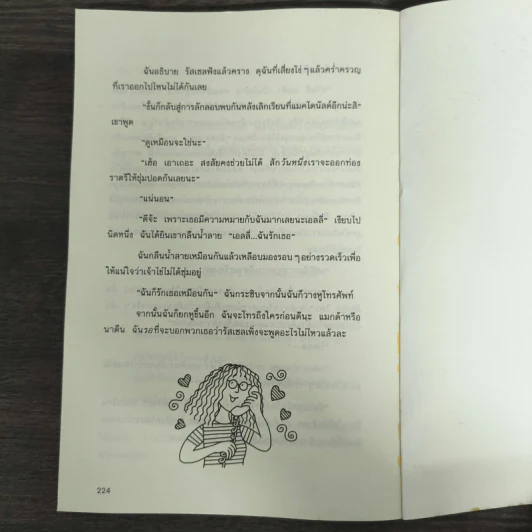 ฉันอธิบาย รัสเซลฟังแล้วคราง ดุฉันที่เสี่ยงโง่ๆ แล้วคร่ำครวญ
ที่เราออกไปไหนไม่ได้กันเลย
"งั้นก็กลับสู่การลักลอบพบกันหลังเลิกเรียนที่แมคโดนัลด์อีกน่ะสิ"
เขาพูด
"ดูเหมือนจะใช่นะ"
"เฮ้อ เอาเถอะ สงสัยคงช่วยไม่ได้ สักวันหนึ่งเราจะออกท่อง
ราตรีให้ชุ่มปอดกันเลยนะ"
"แน่นอน"
"ดีจ้ะ เพราะเธอมีความหมายกับฉันมากเลยนะเอลลี่" เงียบไป
นิดหนึ่ง ฉันได้ยินเขากลืนน้ำลาย "เอลลี่...ฉันรักเธอ"
ฉันกลืนน้ำลายเหมือนกันแล้วเหลือบมองรอบๆ อย่างรวดเร็วเพื่อ
ให้แน่ใจว่าเจ้าไข่ไม่ได้ซุ่มอยู่
"ฉันก็รักเธอเหมือนกัน" ฉันกระซิบจากนั้นฉันก็วางหูโทรศัพท์
จากนั้นฉันก็ยกหูขึ้นอีก ฉันจะโทรถึงใครก่อนดีนะ แมกด้าหรือ
นาดีน ฉันรอที่จะบอกพวกเธอว่ารัสเซลเพิ่งจะพูดอะไรไม่ไหวแล้วละ
224